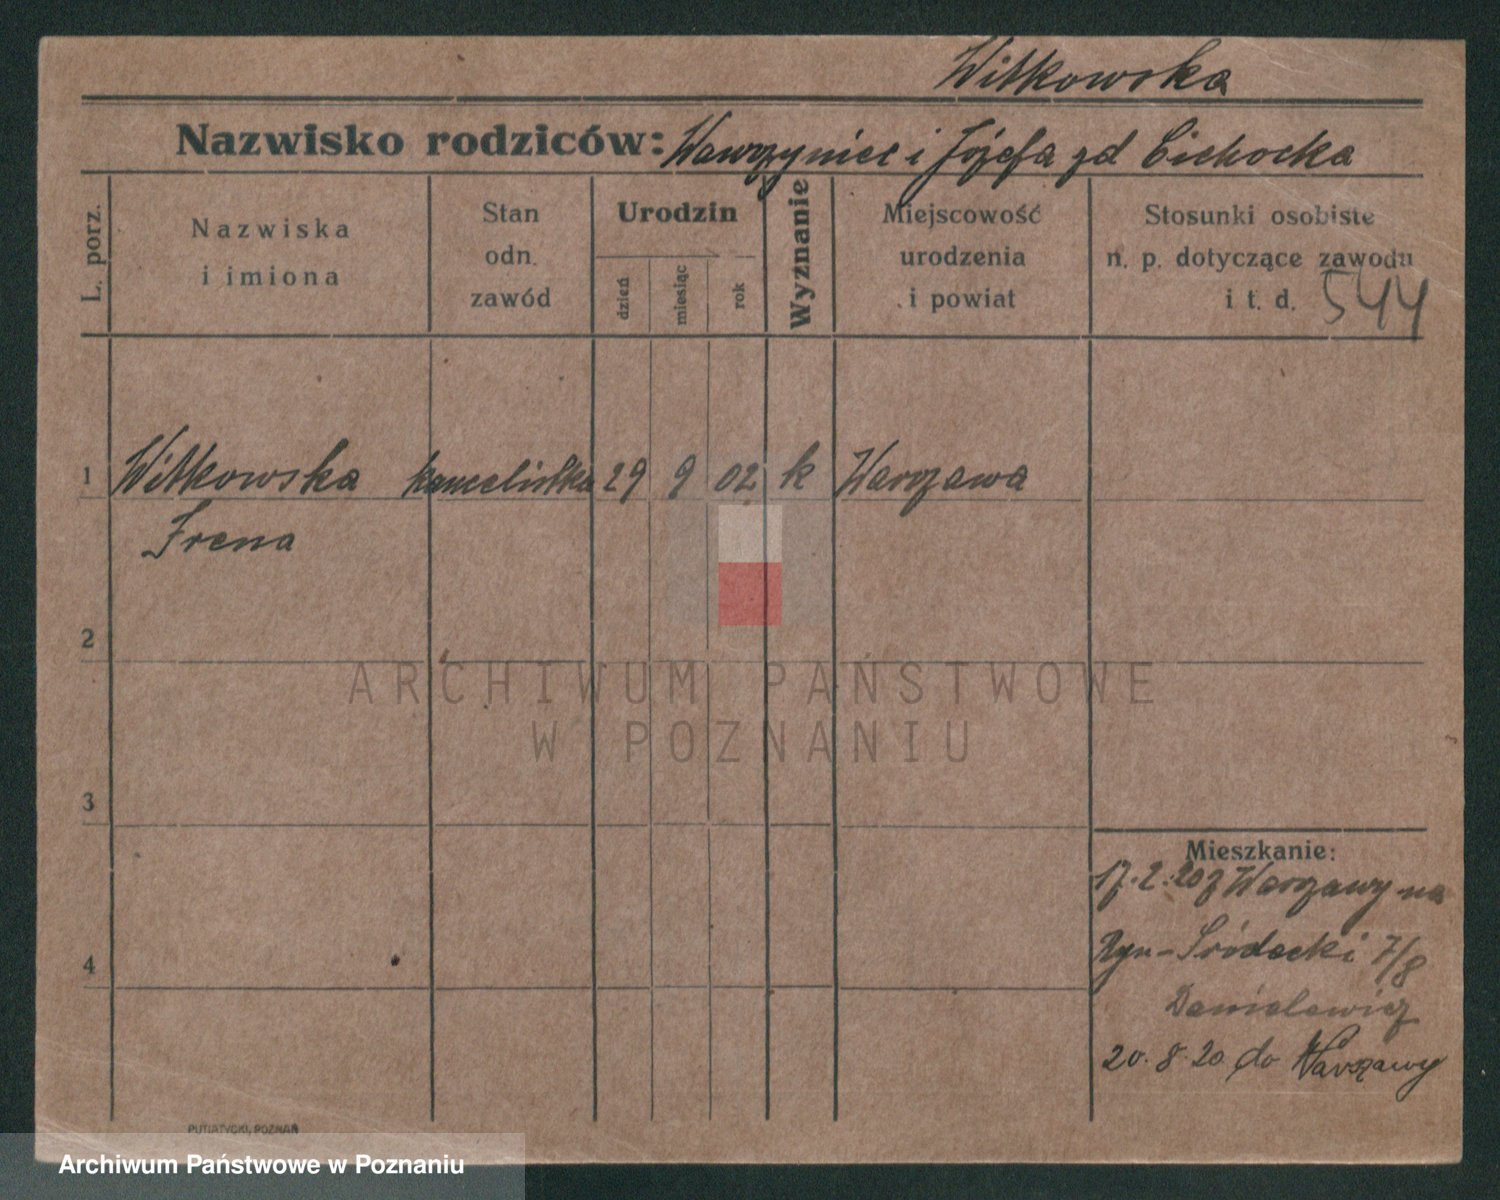 Witkowska
Nazwisko rodziców: Wawrzyniec i Józefa zd Cichocka
L. porz.
Nazwiska
i imiona
Stan
odn.
zawód
Urodzin
dzień
miesiąc
rok
Wyznanie
Miejscowość
urodzenia
i powiat
Stosunki osobiste
n. p. dotyczące zawodu
i t. d. 544
1 Witkowska kancelistka 29 9 02 k Warszawa
Irena
2
ARCHIWUM PAŃSTWOWE
W POZNANIU
3
Mieszkanie:
17.2.20 z Warszawy na
Ryn-Śródecki 7/8
4
Danielewicz
20.8.20 do Warszawy
PUTIATYCKI, POZNAŃ
Archiwum Państwowe w Poznaniu